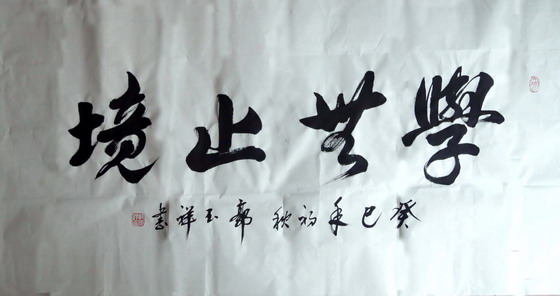 學無止境
癸巳年初秋 郭玉祥書